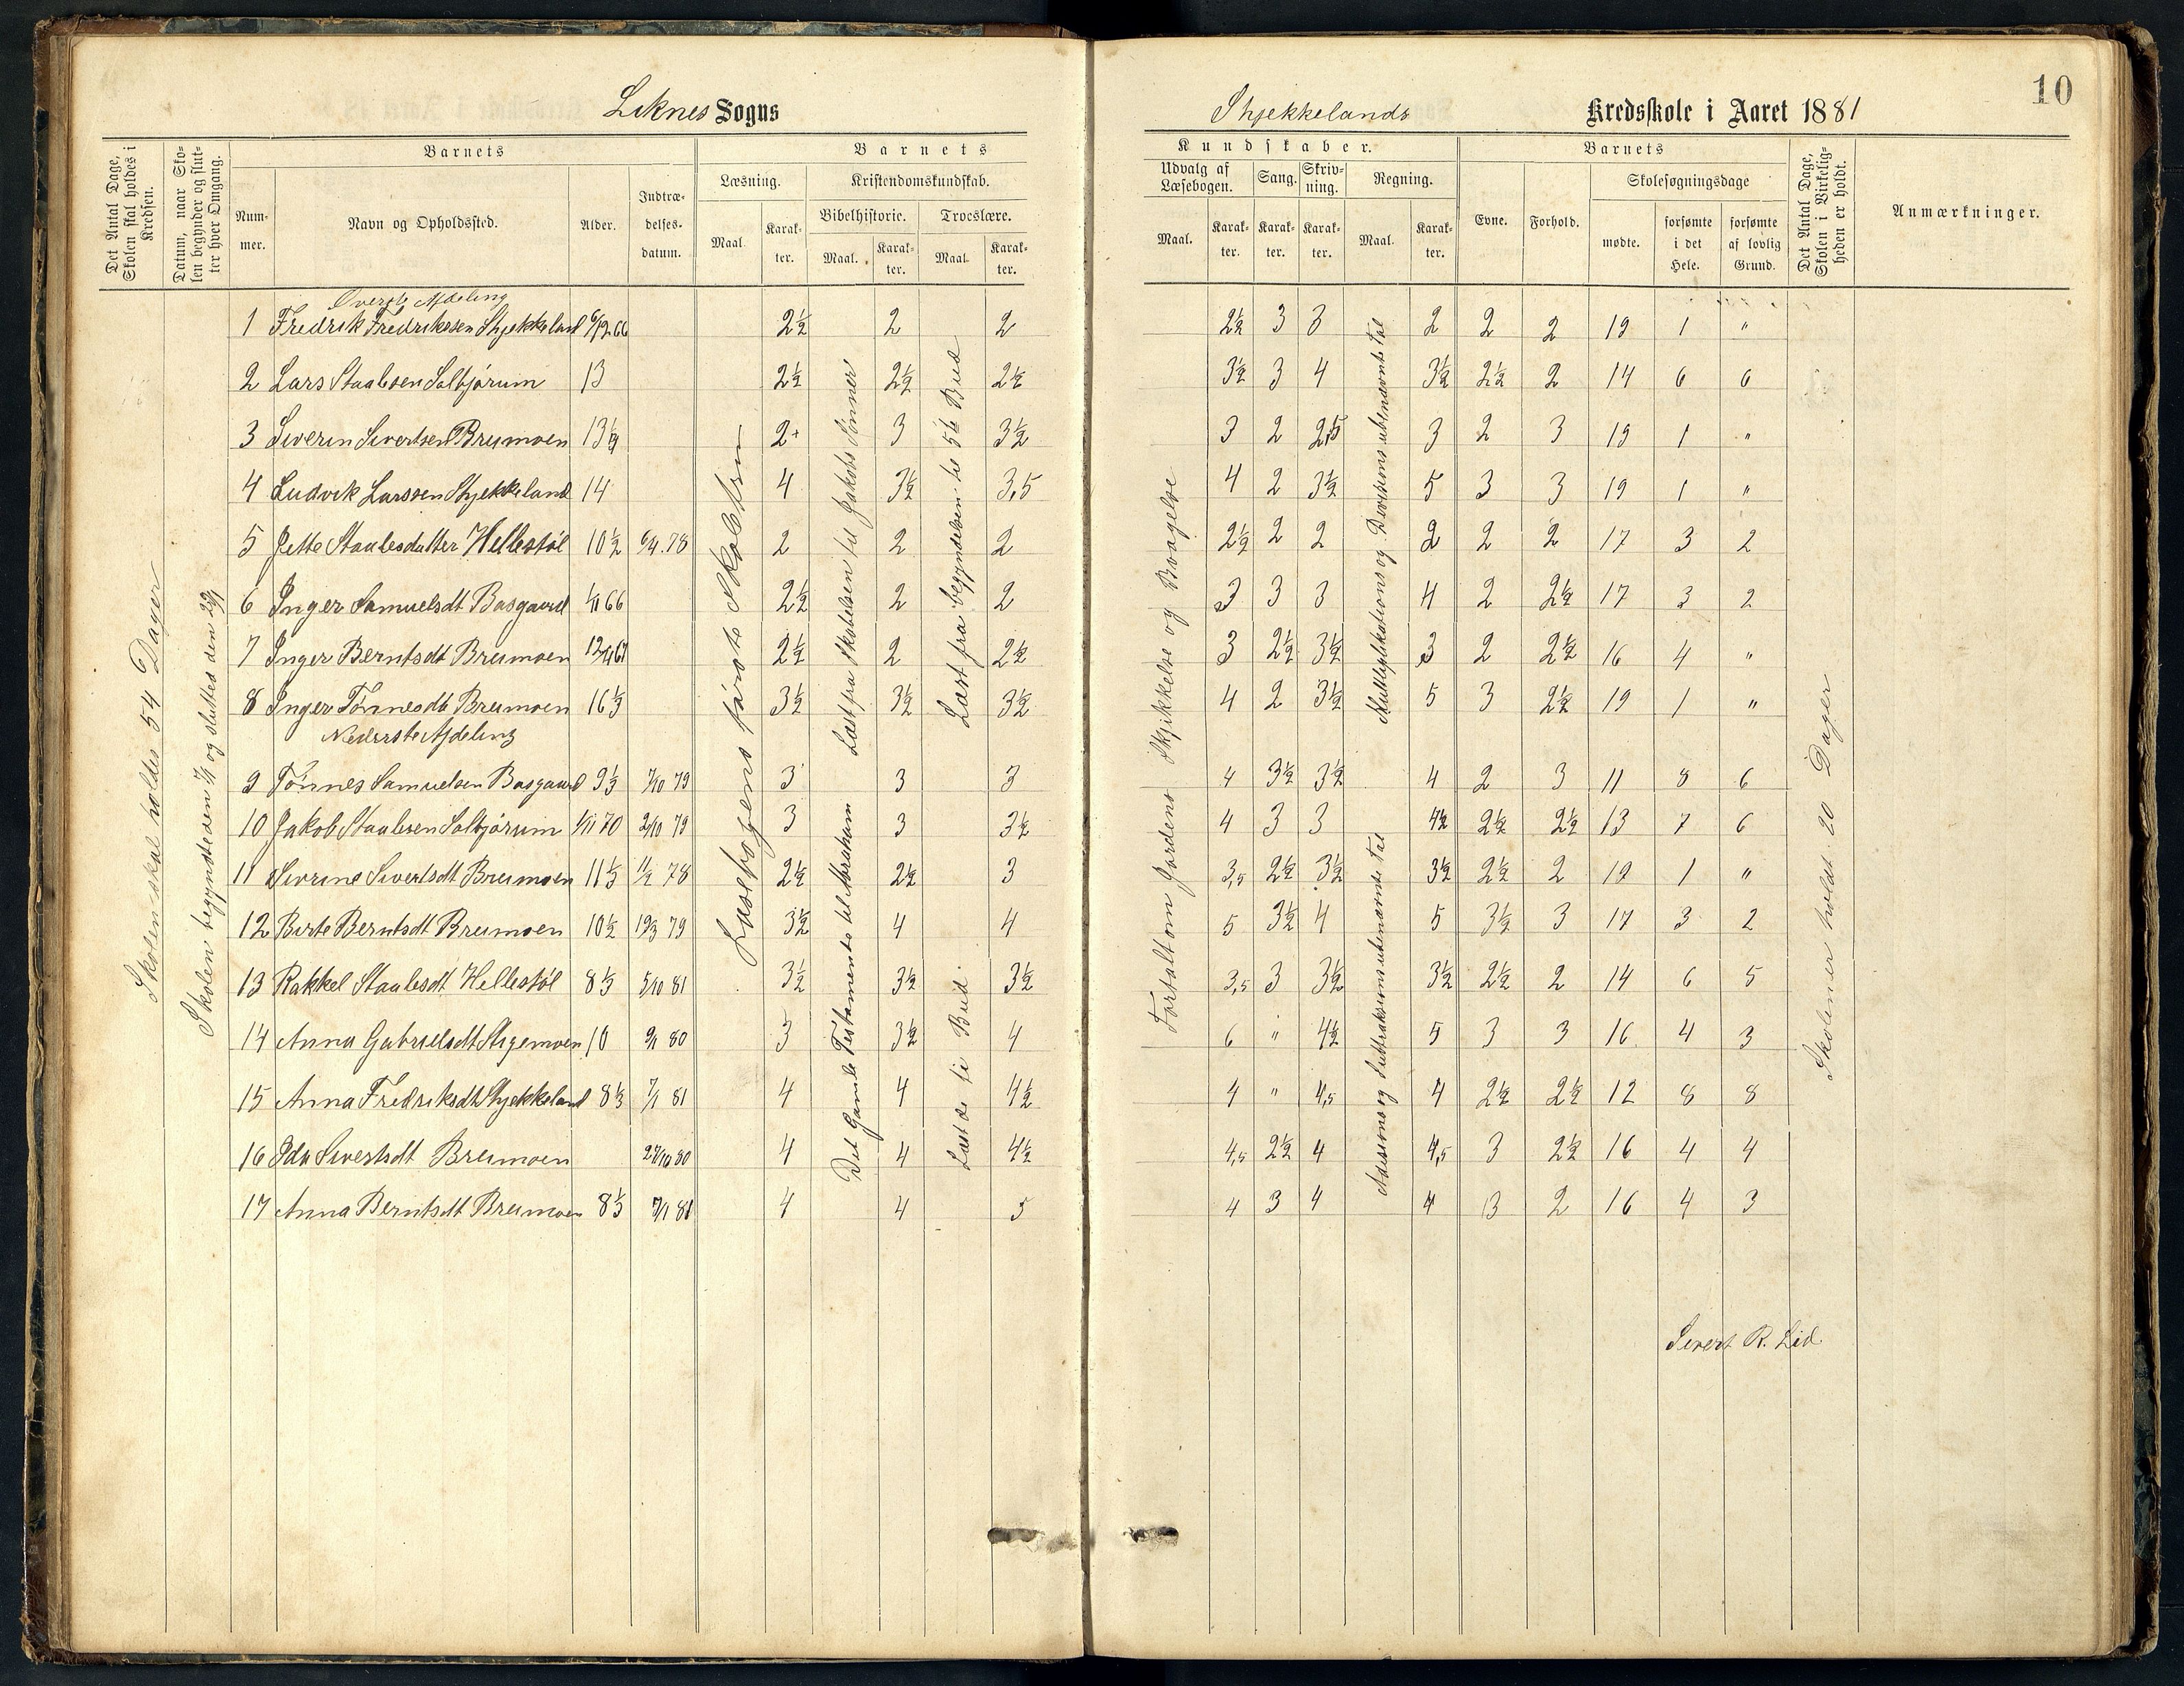 10
Liknes Sogns
Skjekkelands Kredsskole i Aaret 1881
Det Antal Dage, Skolen skal holdes i Kredsen.
Datum, naar Skolen begynder og slutter hver Omgang.
Barnets
Nummer.
Navn og Opholdssted.
Alder.
Indtrædelsesdatum.
Barnets
Læsning.
Maal.
Karakter.
Kristendomskundskab.
Bibelhistorie.
Maal.
Karakter.
Troeslære.
Maal.
Karakter.
Kundskaber.
Udvalg af Læsebogen.
Maal.
Karakter.
Sang.
Karakter.
Skrivning.
Karakter.
Regning.
Maal.
Karakter.
Barnets
Evne.
Forhold.
Skolesøgningsdage
mødte.
forsømte i det Hele.
forsømte af lovlig Grund.
Det Antal Dage, Skolen i Virkeligheden er holdt.
Anmærkninger.
Skolen skal holdes 54 Dager
Skolen begyndte den 7/1 og sluttes den 29/1
Læsebogens første Skoletrin
Læst fra Skabelsen til Jakobs Sønner
Læst fra begyndelsen til 5te Bud
Fortalt om Jordens Skikkelse og Bevægelse
Multiplikations og Divisions ubenævnte Tal
Skolen er holdt 20 Dager
Øverste Afdeling
1 Fredrik Fredriksen Skjekkeland 6/12 66 2½ 2 2 2½ 3 3 2 2 2 19 1 "
2 Lars Staalesen Salbjørum 13 2½ 2½ 2½ 3½ 3 4 3½ 2½ 2 14 6 6
3 Siverin Sivertsen Breimoen 13¼ 2+ 3 3½ 3 2 2,5 3 2 3 19 1 "
4 Ludvik Larssen Skjekkeland 14 4 3½ 3,5 4 2 3½ 5 3 3 19 1 "
5 Jette Staalesdatter Hellestøl 10½ 6/4.78 2 2 2 2½ 2 2 2 2 2 17 3 2
6 Inger Samuelsdt Basgaard 1/11 66 2½ 2 2 3 3 3 4 2 2½ 17 3 2
7 Inger Berntsdt Breimoen 12/4 67 2½ 2 2½ 3 2½ 3½ 3 2 2½ 16 4 "
8 Inger Tønnesdt Breimoen 16⅓ 3½ 3½ 3½ 4 2 3½ 5 3 2½ 19 1 "
Nederste Afdeling
Det Gamle Testamente til Abraham
Læst de ti Bud.
Adisions og Suttraksions ubenævnte Tal
9 Tønnes Samuelsen Basgaard 9⅓ 7/10 79 3 3 3 4 3½ 3½ 4 2 3 11 8 6
10 Jakob Staalesen Salbjørum 1/11 70 2/10 79 3 3 3½ 4 3 3 4½ 2½ 2½ 13 7 6
11 Sivrine Sivertsdt Breimoen 11⅓ 11/2 78 2½ 2½ 3 3,5 2½ 3½ 3½ 2½ 2 19 1 "
12 Birte Berntsdt Breimoen 10½ 19/3 79 3½ 4 4 5 3½ 4 5 3½ 3 17 3 2
13 Rakkel Staalesdt Hellestøl 8⅓ 5/10 81 3½ 3½ 3½ 3,5 3 3½ 3½ 2½ 2 14 6 5
14 Anna Gabrielsdt Stigemoen 10 9/1 80 3 3½ 4 6 " 4½ 5 3 3 16 4 3
15 Anna Fredriksdt Skjekkeland 8⅓ 7/1 81 4 4 4½ 4 " 4,5 4 2½ 2½ 12 8 8
16 Ida Sivertsdt Breimoen 27/10 80 4 4 4½ 4,5 2½ 4 4,5 3 2½ 16 4 4
17 Anna Berntsdt Breimoen 8⅓ 7/1 81 4 4 5 4 3 4 4 3 2 16 4 3
Sivert R. Lid